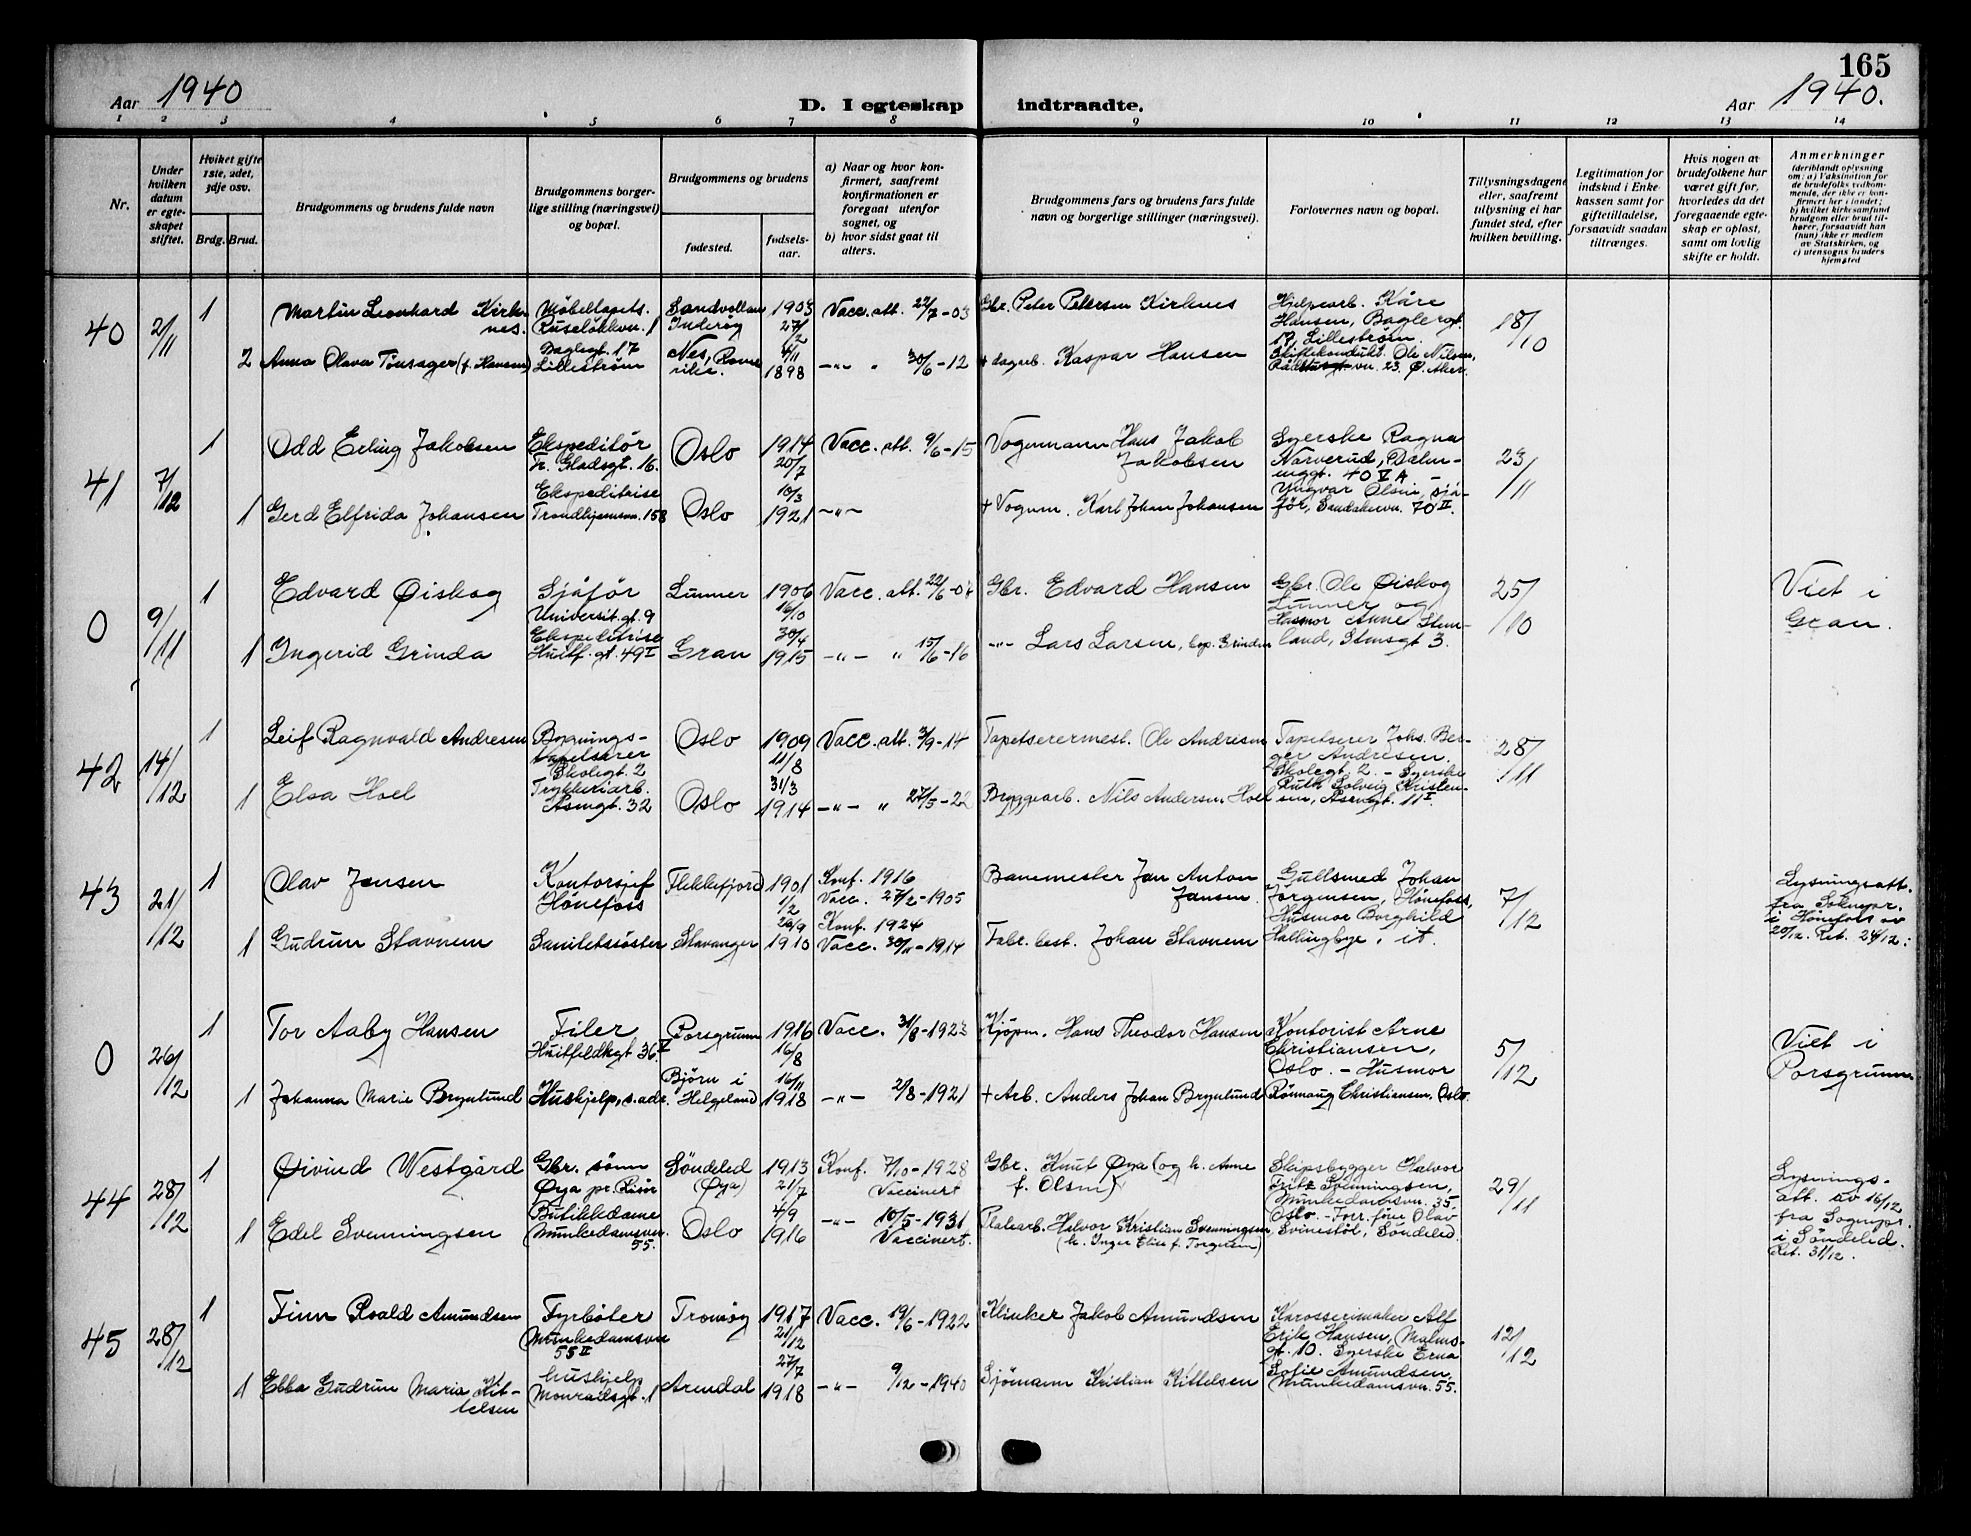 165
Aar 1940
D. I egteskap indtraadte.
Aar 1940.
1 2 3 4 5 6 7 8 9 10 11 12 13 14
Nr.
Under hvilken datum er egteskapet stiftet.
Hvilket gifte 1ste, 2det, 3dje osv.
Brdg. Brud.
Brudgommens og brudens fulde navn
Brudgommens borgerlige stilling (næringsvei) og bopæl.
Brudgommens og brudens
fødested.
fødselsaar.
a) Naar og hvor konfirmert, saafremt konfirmationen er foregaat utenfor sognet, og
b) hvor sidst gaat til alters.
Brudgommens fars og brudens fars fulde navn og borgerlige stillinger (næringsvei).
Forlovernes navn og bopæl.
Tillysningsdagene eller, saafremt tillysning ei har fundet sted, efter hvilken bevilling.
Legitimation for indskud i Enkekassen samt for giftetilladelse, forsaavidt saadan tiltrænges.
Hvis nogen av brudefolkene har været gift før, hvorledes da det foregaaende egteskap er opløst, samt om lovlig skifte er holdt.
Anmerkninger
(deriblandt oplysning om: a) Vaksination for de brudefolks vedkommende, der ikke er konfirmert her i landet; b) hvilket kirkesamfund brudgom eller brud tilhører, forsaavidt han (hun) ikke er medlem av Statskirken, og c) utensogns bruders hjemsted
40 2/11 1 Martin Leonhard Kirknes. Møbeltapets. Ruseløkkvn. 1 Sandvollan Inderøy 1903 27/2 Vacc. att. 22/7-03 Gbr. Peter Petersen Kirknes Hjelpearb. Kåre Hansen, Baglergt. 17, Lillestrøm. 18/10
2 Anna Olava Tinsager (f. Hansen) Baglegt. 17 Lillestrøm Nes, Romerike. 1898 -"- " 30/6-12 + dagarb. Kaspar Hansen Ole Nilsen, vn. 23. Ø. Aker.
41 7/12 1 Odd Erling Jakobsen Ekspeditør Fr. Gladsgt. 16. Oslo 1914 20/7 Vacc. att. 9/6-15 Vognmann Hans Jakob Jakobsen Syerske Ragna Narverud, Dælenenggt. 40 V A 23/11
1 Gerd Elfrida Johansen Ekspeditrise Trondhjemsvn. 158 Oslo 10/3 1921 -"- + Vognm. Karl Johan Johansen Yngvar Olsen, sjåfør, Sandakervn. 70 II.
0 9/11 1 Edvard Øiskog Sjåfør Universit.gt. 9 Lunner 1906 16/10 Vacc. att. 22/6-07 Gbr. Edvard Hansen Gbr. Ole Øiskog Lunner og 25/10 Viet i Gran.
1 Ingerid Grinda Ekspeditrise Huitf. gt. 49 I Gran 30/4 1915 -"- " 15/6-16 -"- Lars Larsen, Husmor Anne Stensgt 3.
42 14/12 1 Leif Ragnvald Andresen Bygningstapetserer Skolegt. 2 Oslo 1909 11/8 Vacc. att. 3/9-14 Tapetserermest. Ole Andresen Tapetserer Johs. Berger Andresen. Skolegt. 2. - Syerske 28/11
1 Elsa Hoel Trykkeriarb. Åsengt. 32 Oslo 31/3 1914 -"- " 27/5-22 Bryggearb. Nils Andersen Hoel Ruth Solveig Kristensen, Åsengt. 11 I.
43 21/12 1 Olav Jensen Kontorsjef Hønefoss Flekkefjord 1901 1/2 Konf. 1916 Vacc. 27/2-1905 Banemester Jan Anton Jansen. Gullsmed Johan Jørgensen, Hønefoss, 7/12 Lysningsatt. fra Soknepr. i Hønefoss av 20/12. Ret. 24/12.
1 Gudrun Stavnem Sanitetssøster Stavanger 26/9 1910 Konf. 1924 Vacc. 30/11-1914 Fabr. best. Johan Stavnem Husmor Borghild Hallingbye, it.
0 26/12 1 Tor Aaby Hansen Filer Huitfeldtsgt 36 V Porsgrunn 1916 16/8 Vacc. 31/8-1923 Kjøpm. Hans Theodor Hansen Kontorist Arne Christiansen, Oslo. - Husmor 5/12 Viet i Porsgrunn.
1 Johanna Marie Brynlund Huskjelp, s. adr. Bjørn i Helgeland 16/11 1918 -"- 2/8-1921 + Arb. Anders Johan Brynlund Rønnaug Christiansen, Oslo.
44 28/12 1 Øivind Westgård Gbr. sønn Øya pr. Risør Søndeled (Øya) 1913 21/7 Konf. 7/10-1928 Vaccinert Gbr. Knut Øya (og h. Anne f. Olsen) Skipsbygger Halvor Fritz Svenningsen, Munkedamsvn. 35. Oslo. 29/11 Lysningsatt. av 16/12 fra Sognepr. i Søndeled. Ret. 31/12.
1 Edel Svenningsen Butikkdame Munkedamsvn 55. Oslo 4/9 1916 -"- 10/5-1931 Vaccinert. Platearb. Halvor Kristian Svenningsen (h. Inger Elise f. Torgersen) Olav Svinestøl, Søndeled.
45 28/12 1 Finn Roald Amundsen Fyrbøter Munkedamsvn 55 II Tromøy 1917 21/12 Vacc. 19/6-1922 Klinker Jakob Amundsen Karosserimaker Alf Erik Hansen, Malmøgt. 10. Syerske Erna 12/12
1 Ebba Gudrun Maria Kittelsen hushjelp Monradsgt. 1 Arendal 27/7 1918 -"- 9/12-1940 Sjømann Kristian Kittelsen Sofie Amundsen, Munkedamsvn. 55.